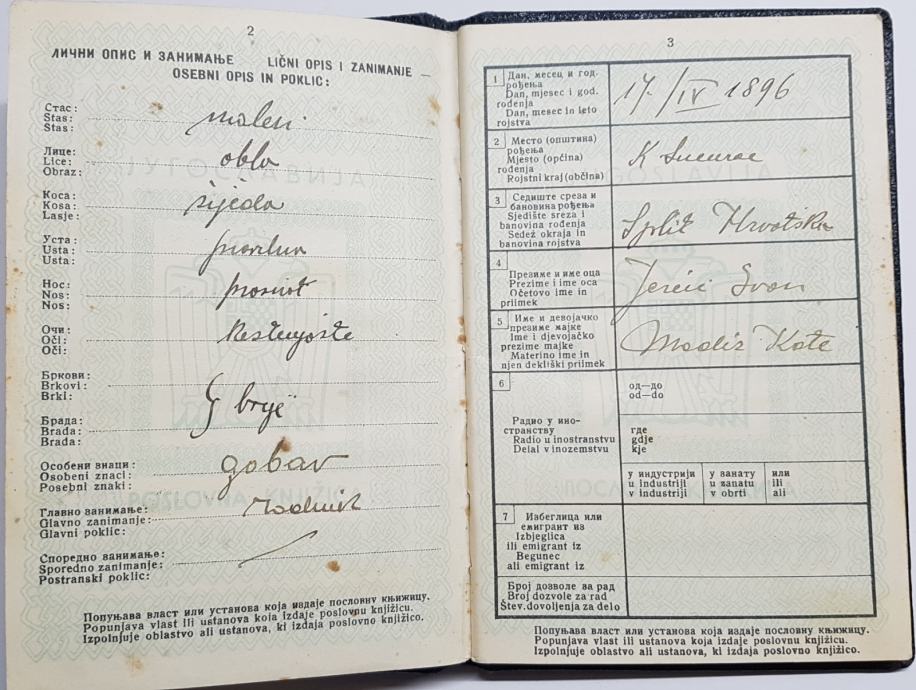 2
ЛИЧНИ ОПИС И ЗАНИМАЊЕ LIČNI OPIS I ZANIMANJE —
OSEBNI OPIS IN POKLIC:
Стас:
Stas:
Stas:
maleni
Лице:
Lice:
Obraz:
oblo
Коса:
Kosa:
Lasje:
sijeda
Уста:
Usta:
Usta:
pravilna
Нос:
Nos:
Nos:
Очи:
Oči:
Oči:
Бркови:
Brkovi:
Brki:
Брада:
Brada:
Brada:
brije
Особени знаци:
Osobeni znaci:
Posebni znaki:
gobav
Главно занимање:
Glavno zanimanje:
Glavni poklic:
radnik
Споредно занимање:
Sporedno zanimanje:
Postranski poklic:
Попуњава власт или установа која издаје пословну књижицу.
Popunjava vlast ili ustanova koja izdaje poslovnu knjižicu.
Izpolnjuje oblastvo ali ustanova, ki izdaja poslovno knjižico.
ЈУГОСЛАВИЈА
POSLOVNA KNJIŽICA
3
1
Дан, месец и год.
рођења
Dan, mjesec i god.
rođenja
Dan, mesec in leto
rojstva
17/IV 1896
2
Место (општина)
рођења
Mjesto (općina)
rođenja
Rojstni kraj (občina)
K Sucurac
3
Седиште среза и
бановина рођења
Sjedište sreza i
banovina rođenja
Sedež okraja in
banovina rojstva
Split Hrvatska
4
Презиме и име оца
Prezime i ime oca
Očetovo ime in
priimek
Ivan
5
Име и девојачко
презиме мајке
Ime i djevojačko
prezime majke
Materino ime in
njen dekliški priimek
Kate
6
Радио у ино-
странству
Radio u inostranstvu
Delal v inozemstvu
од—до
od—do
где
gdje
kje
у индустрији
u industriji
v industriji
у занату
u zanatu
v obrti
или
ili
ali
7
Избеглица или
емигрант из
Izbjeglica
ili emigrant iz
Begunec
ali emigrant iz
Број дозволе за рад
Broj dozvole za rad
Štev. dovoljenja za delo
Попуњава власт или установа која издаје пословну књижицу.
Popunjava vlast ili ustanova koja izdaje poslovnu knjižicu.
Izpolnjuje oblastvo ali ustanova, ki izdaja poslovno knjižico.